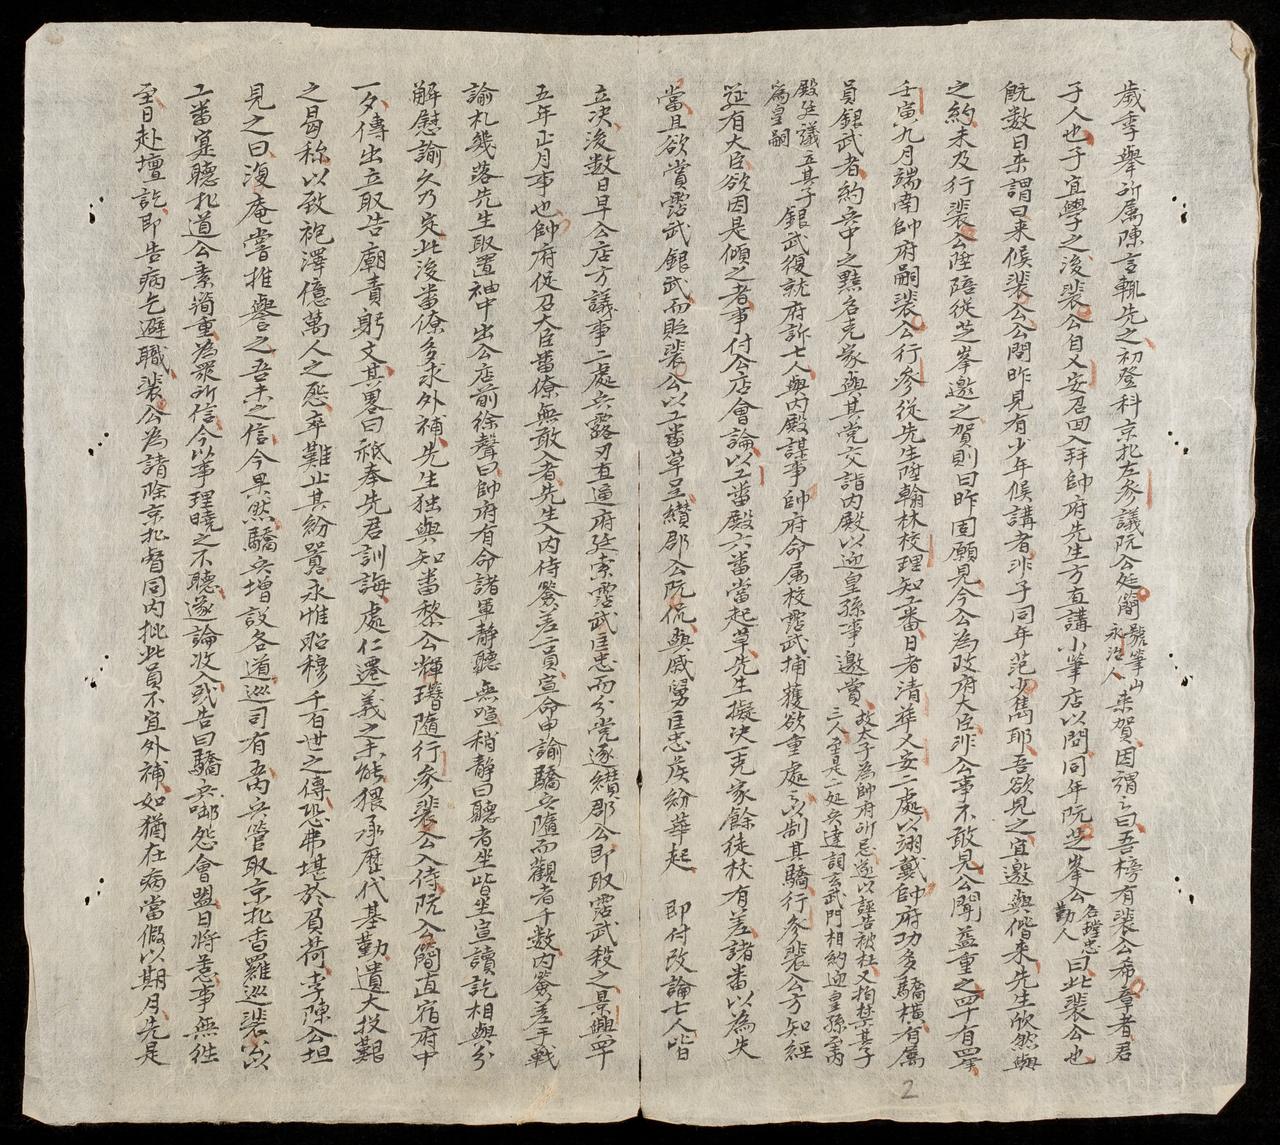 歲季舉所属陳言輒先之初登科京北左參議阮公廷簡號筆山永治人來賀因謂之曰吾榜有裴公希章者君
子人也子宜學之後裴公自乂安召回入拜帥府先生方直講小筆店以問同年阮芝峯公名璀忠勤人曰此裴公也
既数日来謂曰来候裴公公問昨見有少年候講者非子同年范少雋耶吾欲見之宜邀與偕來先生欣然與
之約未及行裴公陞陪從芝峯邀之賀則曰昨固願見今公為政府大臣非公事不敢見公聞益重之四十有四年
壬寅九月端南帥府嗣裴公行參從先生陞翰林校理知工番日者清華乂安二處以翊戴帥府功多驕橫有属
員銀武者約兵中之黠名克家與其党交詣内殿以迎皇孫事邀賞故太子為帥府所忌遂以誣告被杜又拘禁其子三人至是二処兵達詞玄武門相約迎皇孫至内
殿廷議立其子為皇嗣銀武復就府訴七人與内殿謀事帥府命属校霑武捕獲欲重處之以制其驕行參裴公方知經
筵有大臣欲因是傾之者事付公店會論以工番殿六番當起草先生擬决一克家餘徒杖有差諸番以為失
當且欲賞霑武銀武而貶裴公以工番草呈纘郡公阮侃與戚舅匡忠侯紛華起　即付改論七人皆
立决後数日早公店方議事二處兵露刃直逼府廷索霑武匡忠而分党逐纘郡公即取霑武殺之景興四十
五年正月事也帥府促召大臣番僚無敢入者先生入内侍簽差二員宣命申諭驕兵隨而觀者千数内簽差手戰
諭札幾落先生取置袖中出公店前徐聲曰帥府有命諸軍静聽無喧稍静曰聽者坐皆坐宣讀訖相與分
解慰諭久乃定此後番僚多求外補先生独與知番黎公輝瑨随行參裴公入侍阮公簡直宿府中
一夕傳出立取告廟責躬文其畧曰祇奉先君訓誨處仁遷義之未能猥承歷代基勤遺大投艱
之曷称以致袍澤億萬人之態卒難止其紛囂永惟昭穆千百世之傳恐弗堪於負荷李陳公坦
見之曰復庵嘗推譽之吾未之信今果然驕兵增設各道巡司有五丙兵管取京北香羅巡裴公以
工番寔聽北道公素簡重為衆所信今以事理曉之不聽遂論收入或告曰驕兵啣怨會盟日將惹事無往
至日赴壇訖即告病乞避職裴公為請除京北督同内批此員不宜外補如猶在病當假以期月先是
2